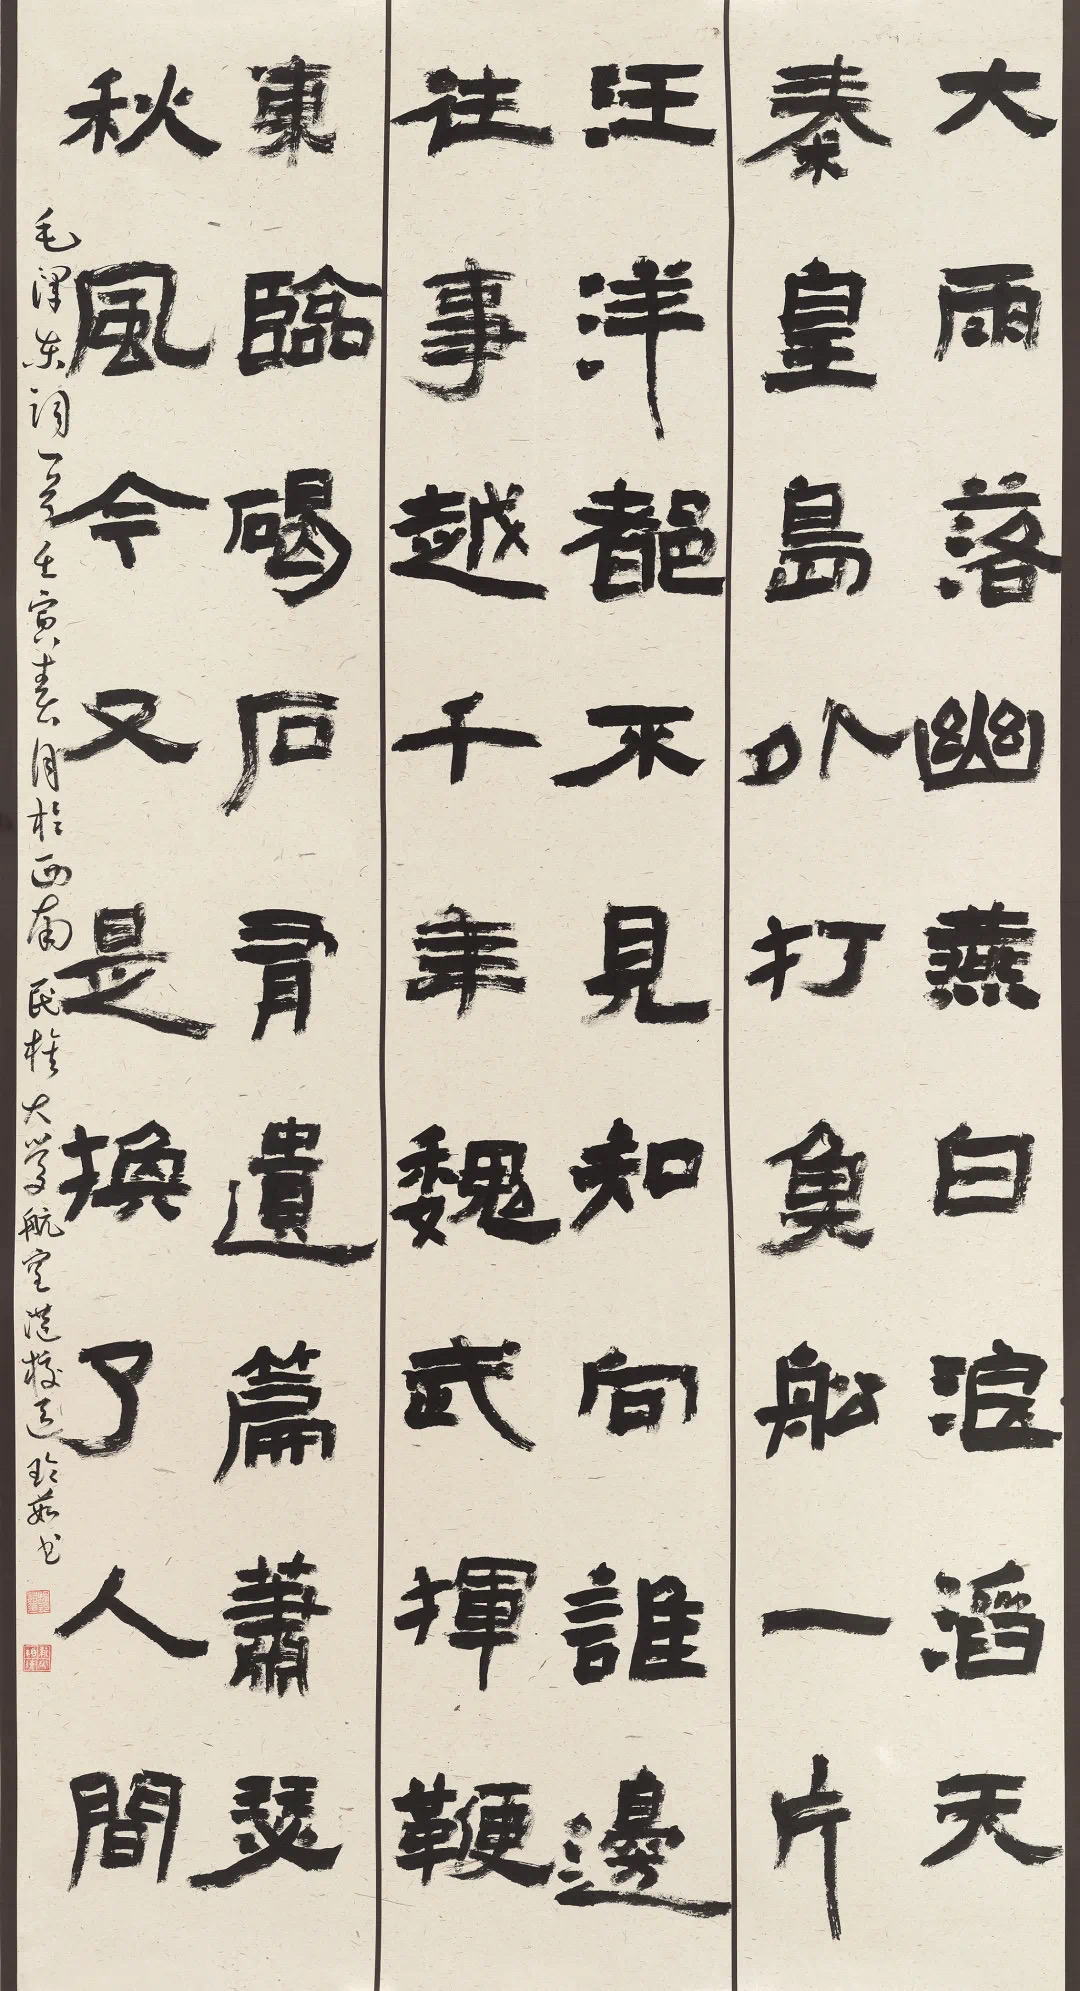 大雨落幽燕白浪滔天
秦皇島外打魚船一片
汪洋都不見知向誰邊
往事越千年魏武揮鞭
東臨碣石有遺篇蕭瑟
秋風今又是換了人間
毛澤东詞一首壬寅春月於西南民族大學航空港校區玲茹书